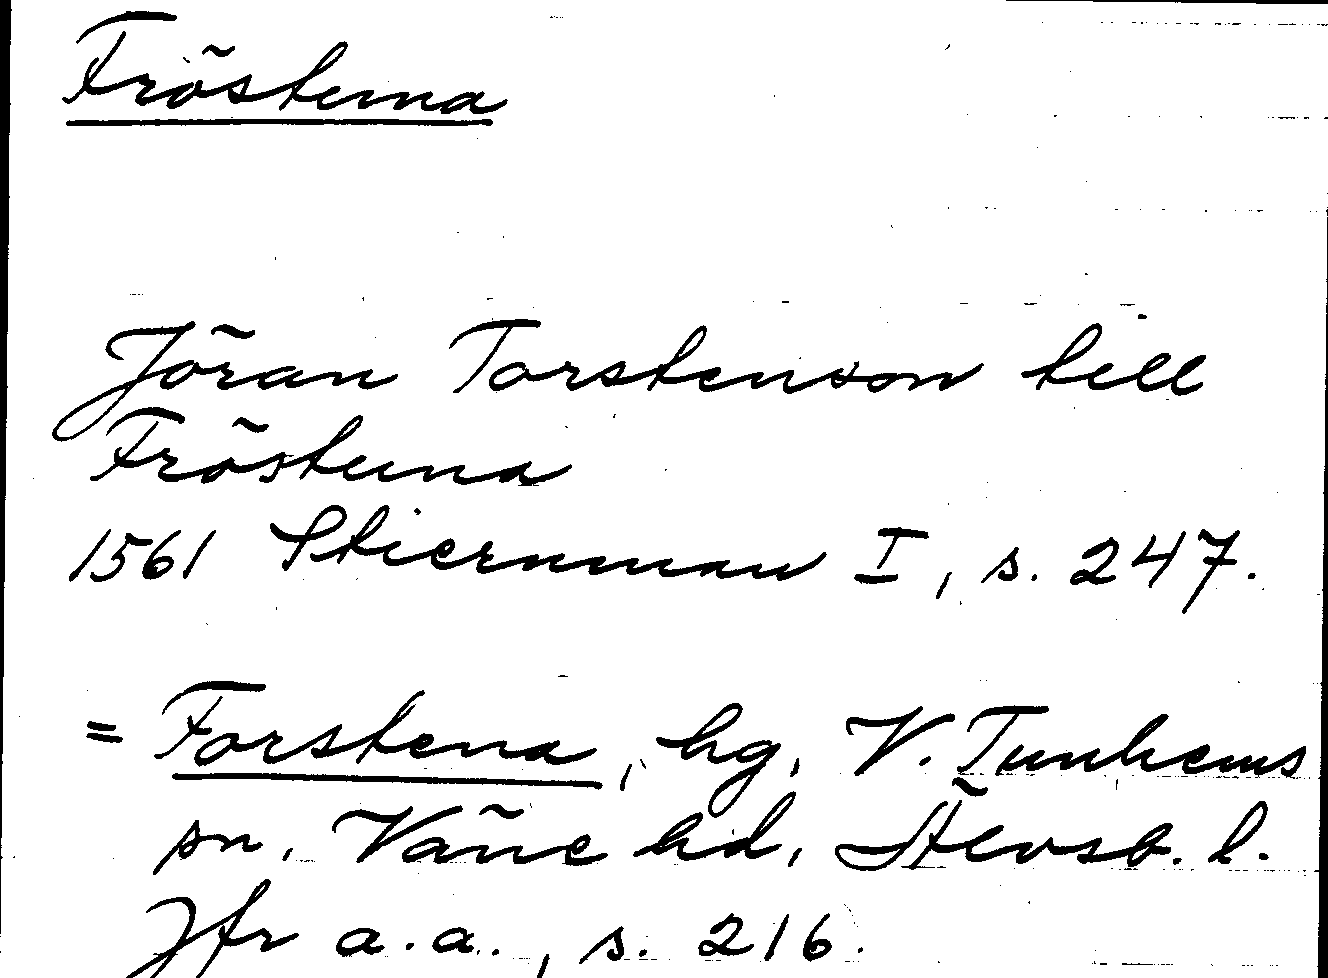 Fröstuna
Jöran Torstenson till
Fröstuna
1561 Stiernman I, s. 247.
= Forstena, hg, V. Tunhems
sn, Väne hd, Älvsb. l.
Jfr a.a., s. 216.